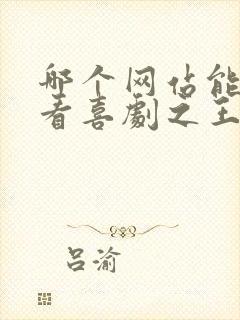 哪个网站能
看喜劇之王
吕渝